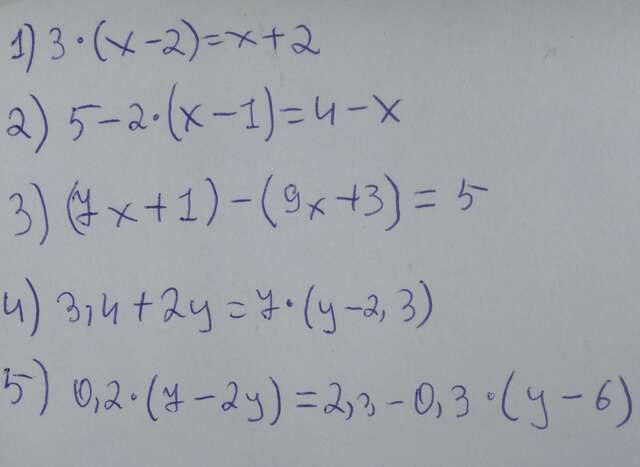 1) 3·(x-2)=x+2
2) 5-2·(x-1)=4-x
3) (7x+1)-(9x+3)=5
4) 3,4+2y=7·(y-2,3)
5) 0,2·(7-2y)=2,3-0,3·(y-6)